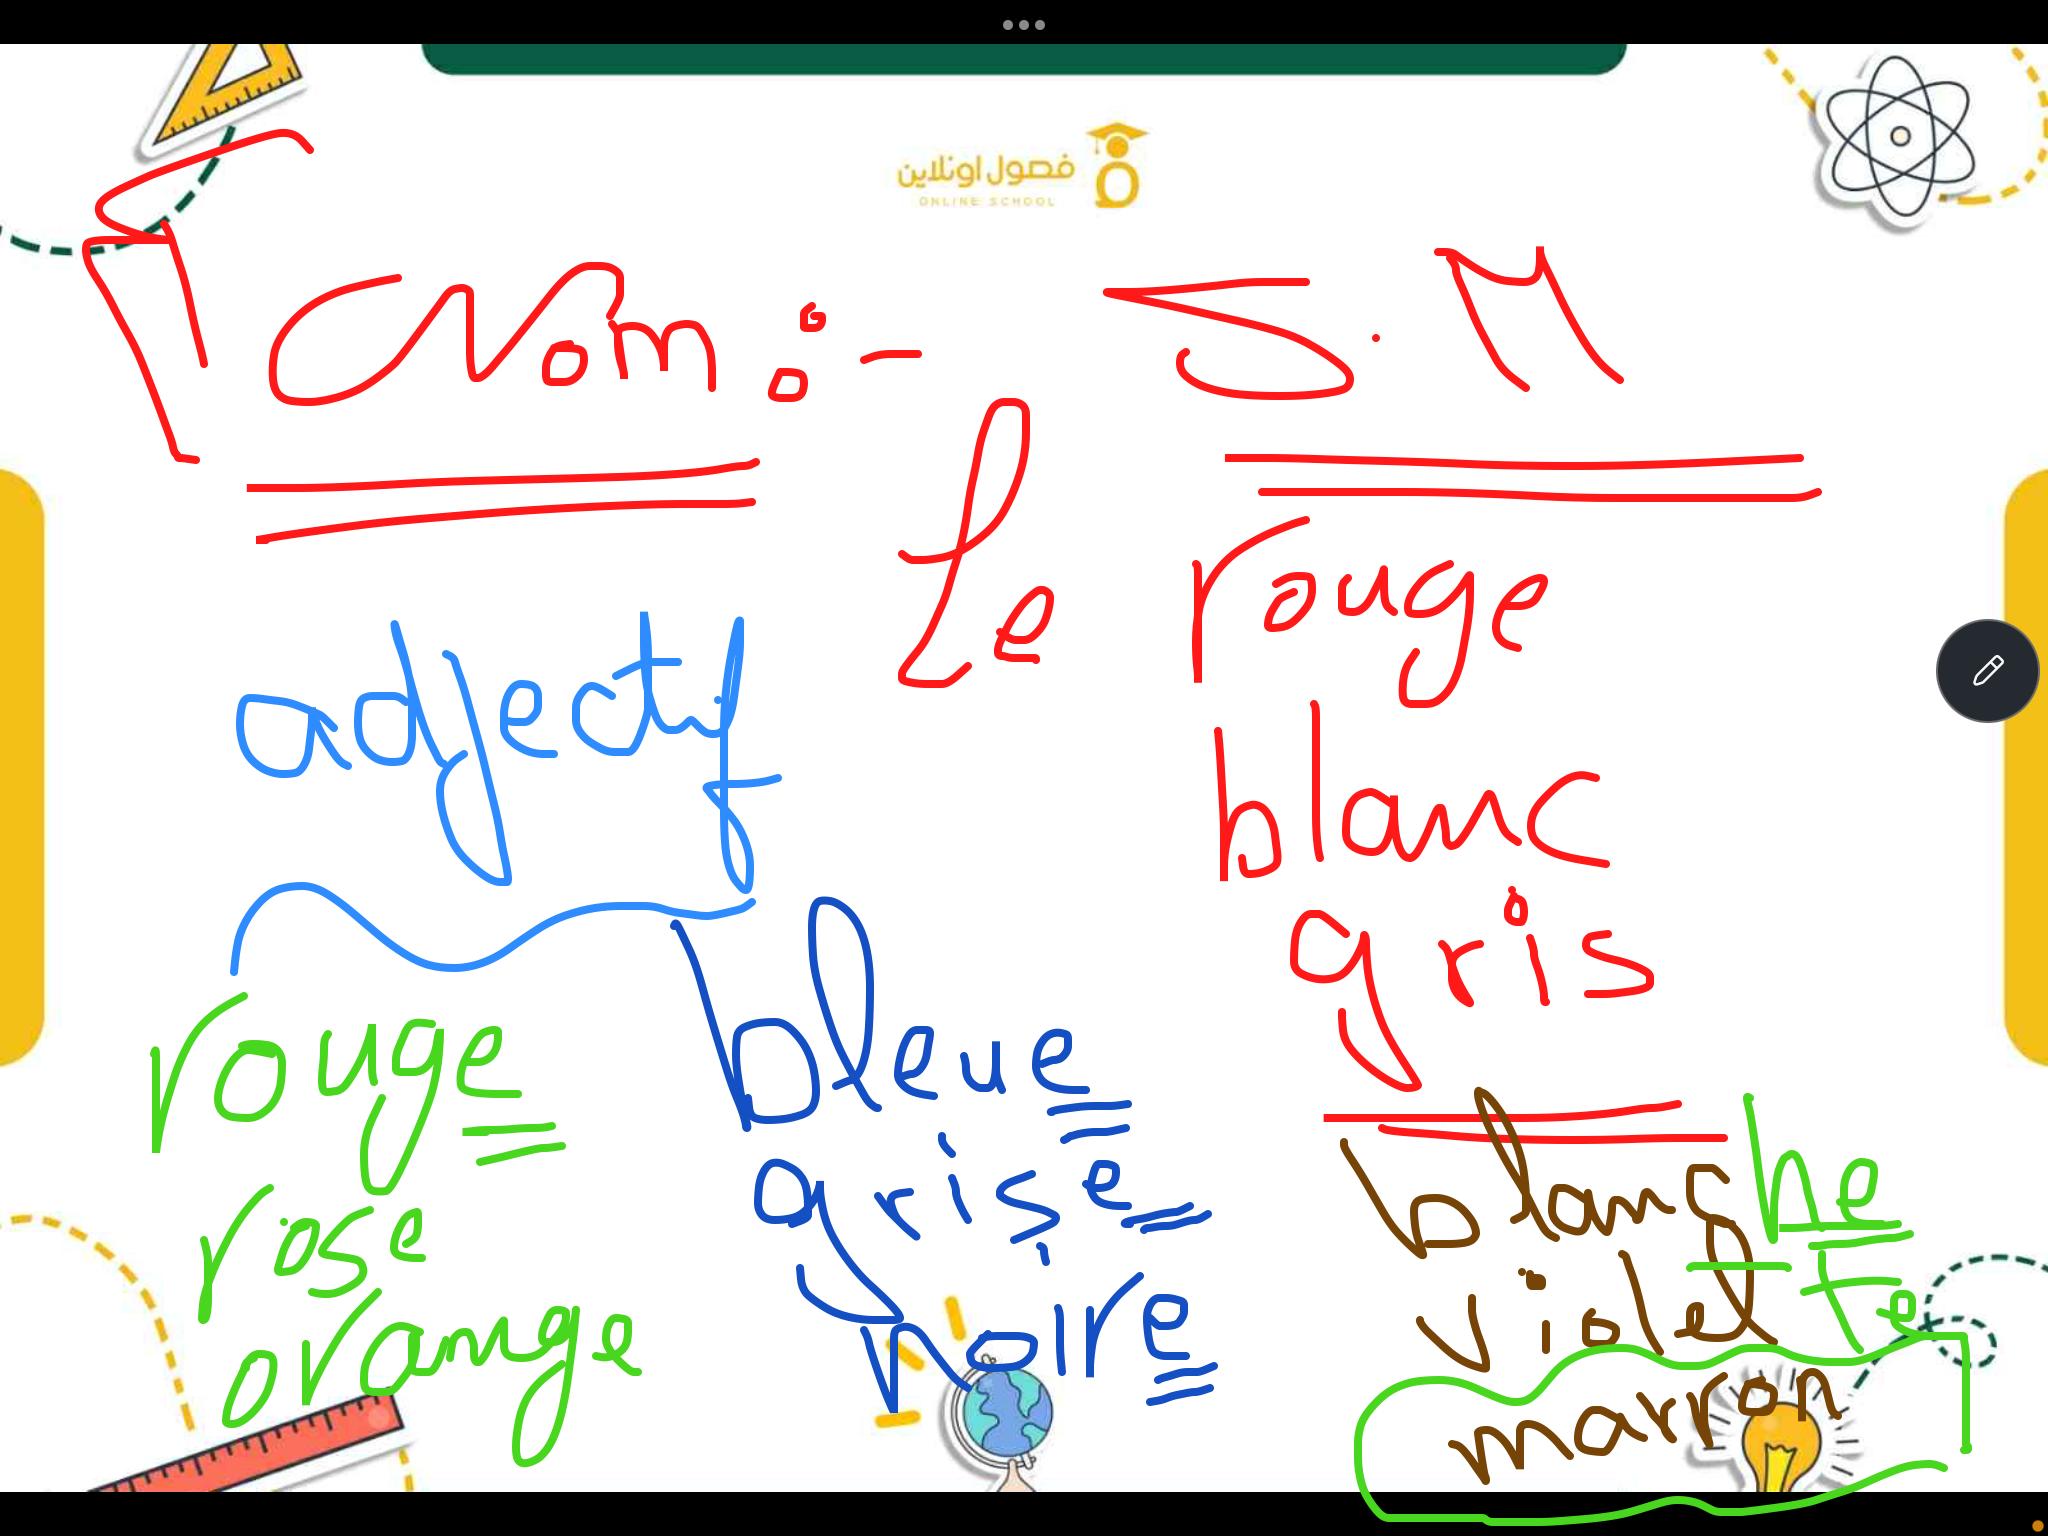 فصول اونلاين
ONLINE SCHOOL
Nom :- S.M
Le rouge
blanc
gris
adjectif
rouge
rose
orange
bleue
grise
noire
blanche
violette
marron